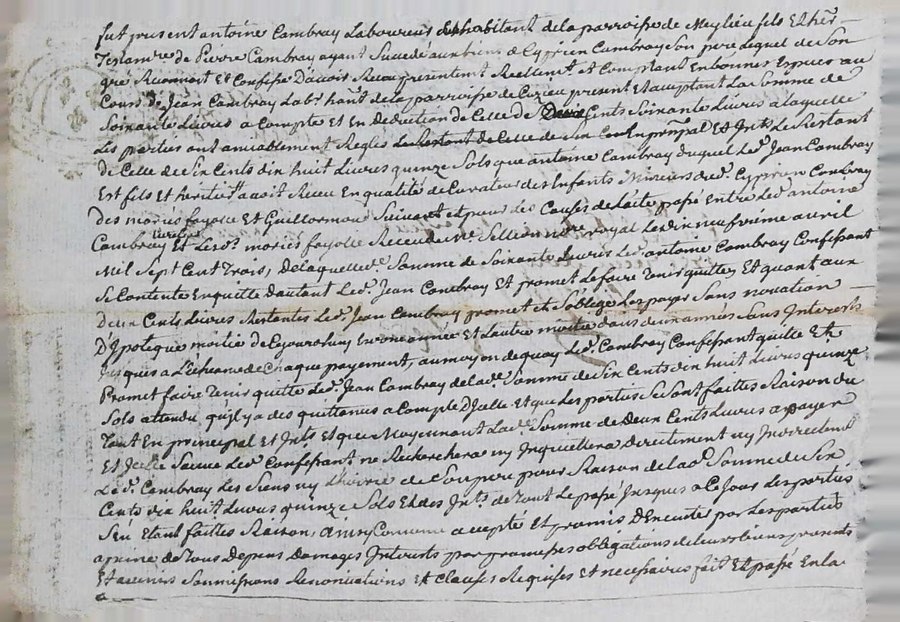 fut présent antoine Cambray Laboureur habitant dela parroisse de Meylieu fils Et her
Testamre de Pierre Cambray ayant Succedé aux biens de Cyprien Cambray Son pere lequel de Son
gré Reconnoit Et Confesse D'avoir Receu présentemt Reellemt Et Comptant En bonnes Especes au
Cours de Jean Cambray Labr hant dela parroisse de present Et acceptant La Somme de
Soixante Livres a Compte Et En Deduction de Celle de Deux Cents Soixante Livres a laquelle
Les parties ont amiablement Reglés Le Restant de Celle de Six Cent En prinpal Et Intts Le Restant
de Celle de Six Cents dix huit Livres quinze Sols que antoine Cambray duquel Led Jean Cambray
Est fils Et heritier avoit Receu En qualité de Curateur des Infants Mineurs de Cyprien Cambray
des mariés fayolle Et Guillermond Suivant Et pour des Causes de Lacte passé Entre Led antoine
Cambray Et Lesds mariés fayolle Receu de nre royal Le dix neufvieme avril
Mil Sept Cent Trois, De laquelle Somme de Soixante Livres Led antoine Cambray Confessant
Se Contente En quitte d'autant Led Jean Cambray Et promet Le faire Tenir quitte, Et quant aux
deux Cents Livres Restantes Led Jean Cambray promet Et S'oblige Les payer Sans novation
D'ypoteque moitié de Ce jourdhuy En une année Et Lautre moitié dans deux années Sans Interests
jusques a L'écheance de Chaque payement, au moyen de quoy Led Cambray Confessant quitte Et
Promet faire Tenir quitte Led Jean Cambray de lade Somme de Six Cents dix huit Livres quinze
Sols attendu qu'il y a des quittances a Compte D'icelle Et que Les parties Se Sont faittes Raison du
Tout En principal Et Intts Et que Moyennant Lade Somme de Deux Cents Livres a payer
Et Icelle Sauve Led Confessant ne Recherchera ny Inquiettera directement ny Indirectement
Led Cambray Les Siens ny de Coupere pour Raison de lade Somme de Six
Cents dix huit Livres quinze Sols Et des Intts de Tout Le passé Jusques a Ce Jour Les parties
S'en Etant faittes Raison, ainsy Convenu accepté Et promis D'Executer par Les parties
a peine de Tous Depens Domages Interests par promesses obligations de leurs biens presents
Et avenirs Soumissions Renonciations Et Clauses Requises Et necessaires fait Et passé En la